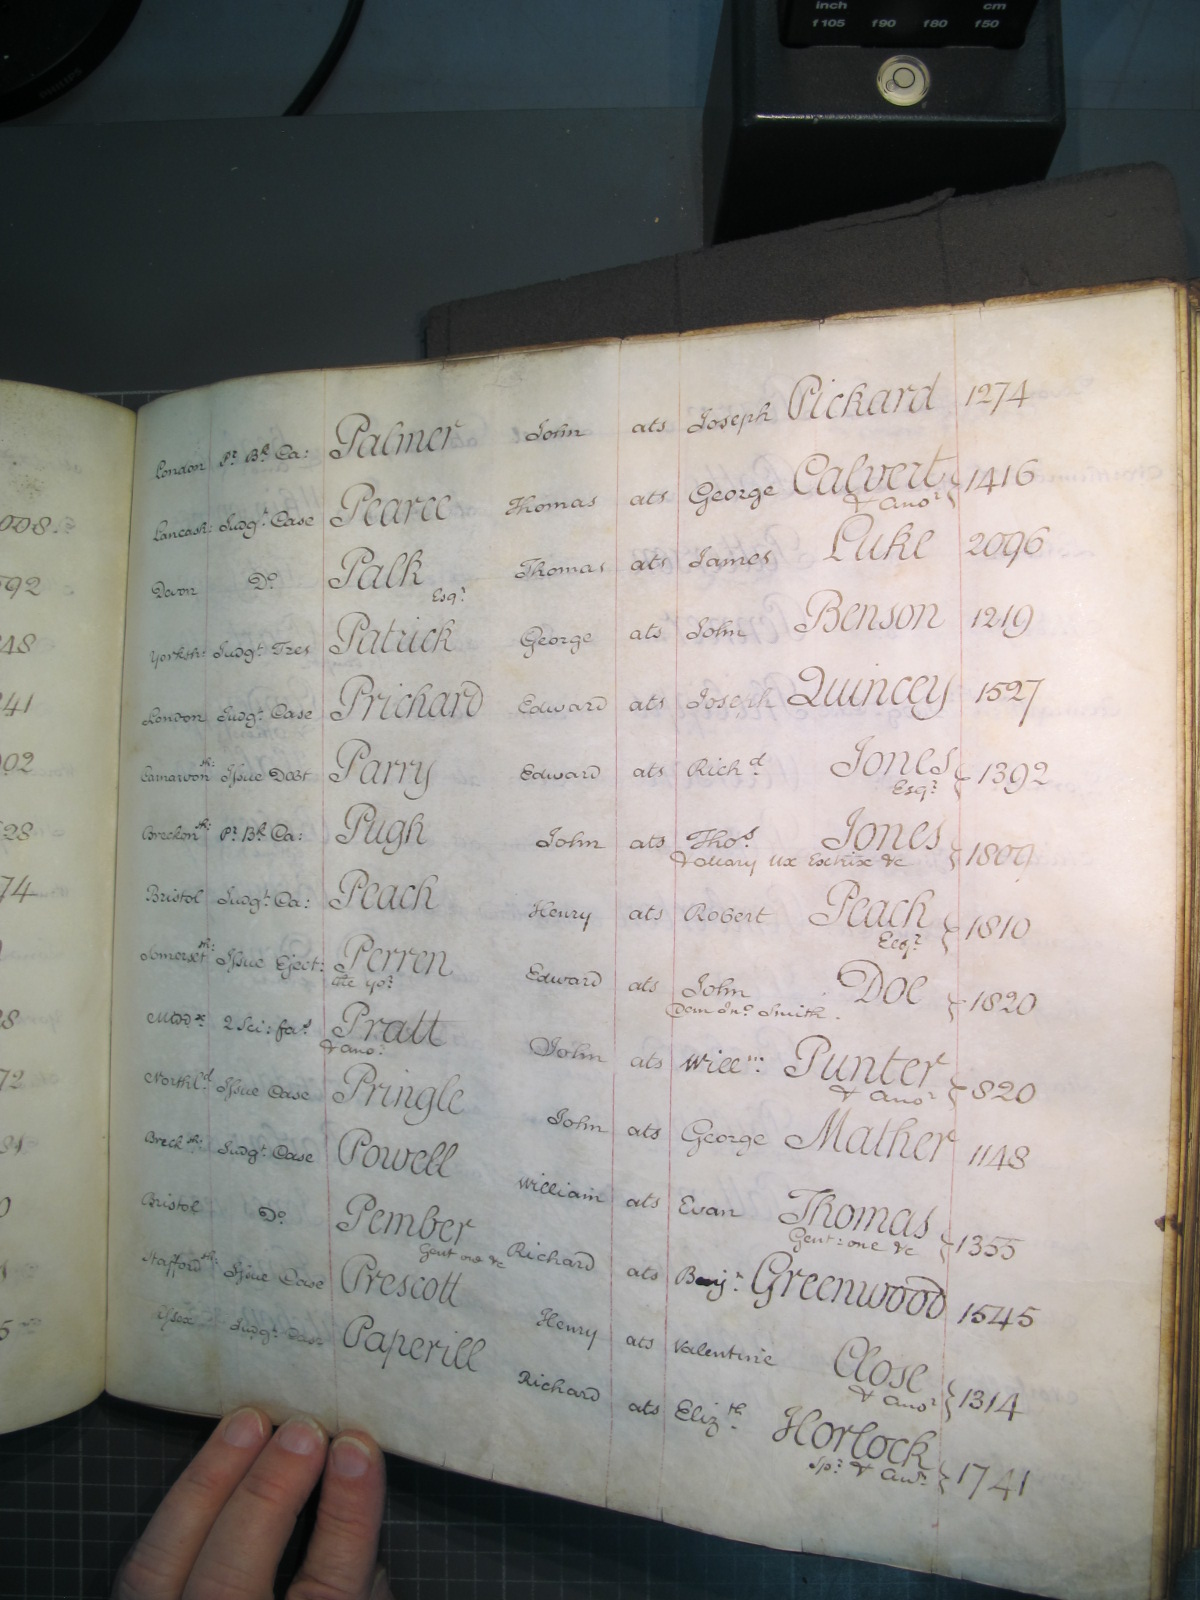 inch cm
f105 f90 f80 f50
London Pr Bk Ca: Palmer John ats Joseph Pickard 1274
Lancash: Judgt Case Pearce Thomas ats George Calvert 1416
& Anor
Devon Do Palk Thomas ats James Luke 2096
Esqr
Yorksh: Judgt Tres Patrick George ats John Benson 1219
London Judgt Case Prichard Edward ats Joseph Quincey 1527
Carnarvonsh: Issue Debt Parry Edward ats Richd Jones 1392
Esqr
Breckonsh: Pr Bk Ca: Pugh John ats Thos Jones 1809
& Mary Ux &c
Bristol Judgt Ca: Peach Henry ats Robert Peach 1810
Esqr
Somersetsh: Issue Eject: Perren Edward ats John Doe 1820
the yor Dem Jno Smith
Middx 2 Sci: fas Pratt John ats Willm: Punter 820
& Anor & Anor
Northld Issue Case Pringle John ats George Mather 1148
Brecksh: Judgt Case Powell William ats Evan Thomas 1355
Gent: one &c
Bristol Do Pember Richard ats Benjn Greenwood 1545
Gent one &c
Staffordsh: Issue Case Prescott Henry ats Valentine Close 1314
& Anor
Essex Judgt Case Paperill Richard ats Elizth Horlock 1741
Spr & Anor
008.
592
48
41
02
28
74
8
72
5